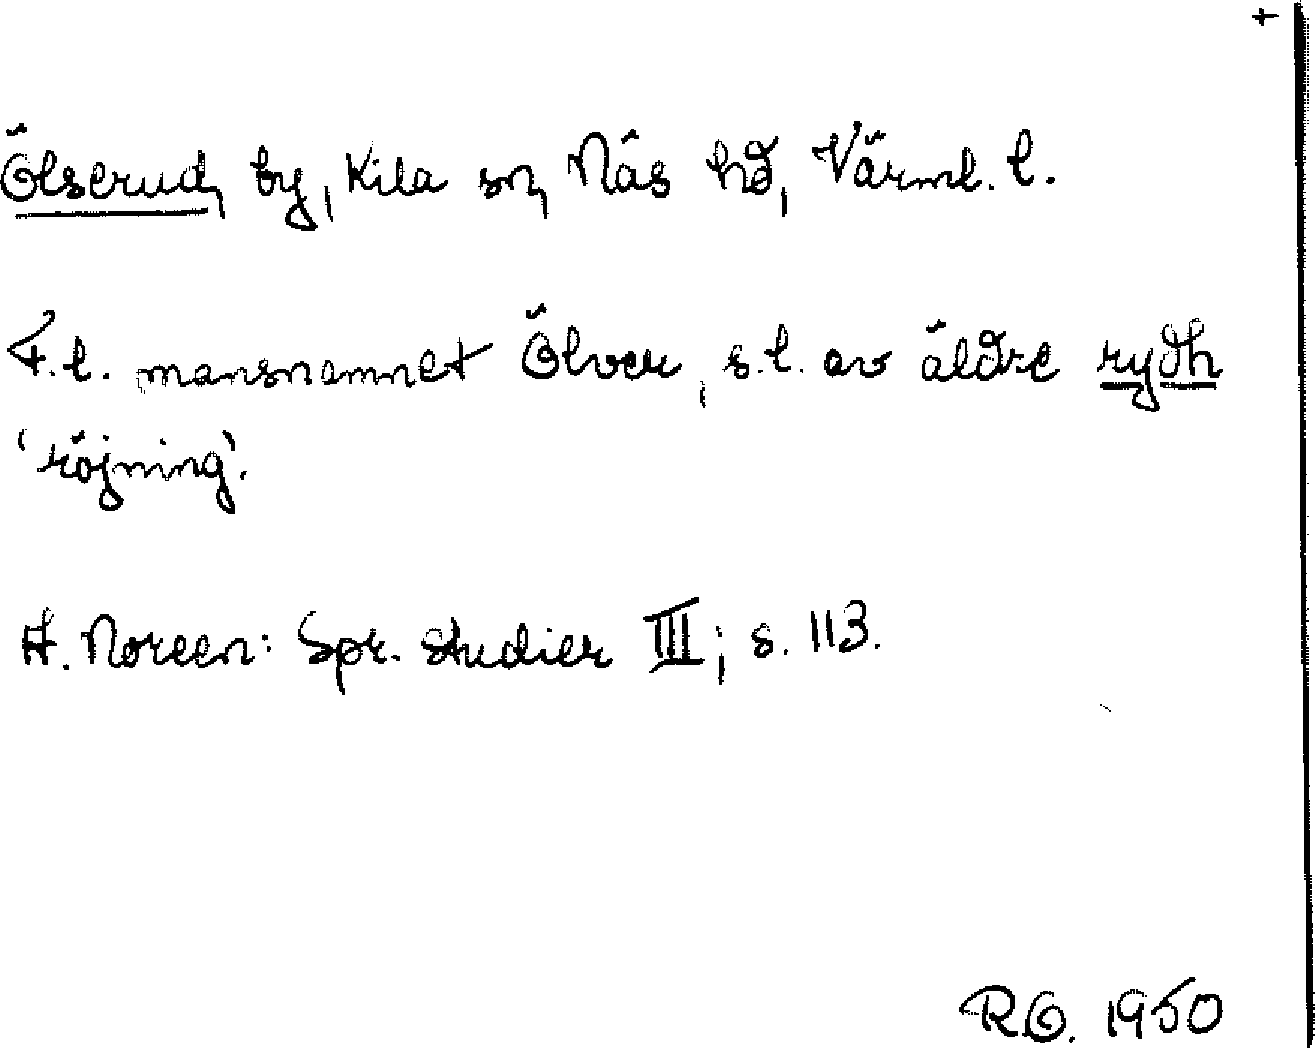 +
Ölserud, by, Kila sn, Näs hd, Värml. l.
F.l. mansnamnet Ölver, s.l. av äldre rydh
'röjning'.
H. Noreen: Spr. studier III; s. 113.
R.G. 1950